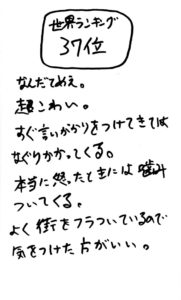 世界ランキング
37位
なんだてめえ。
超こわい。
すぐ言いがかりをつけてきては
なぐりかかってくる。
本当に怒ったときには噛み
ついてくる。
よく街をフラついているので
気をつけた方がいい。